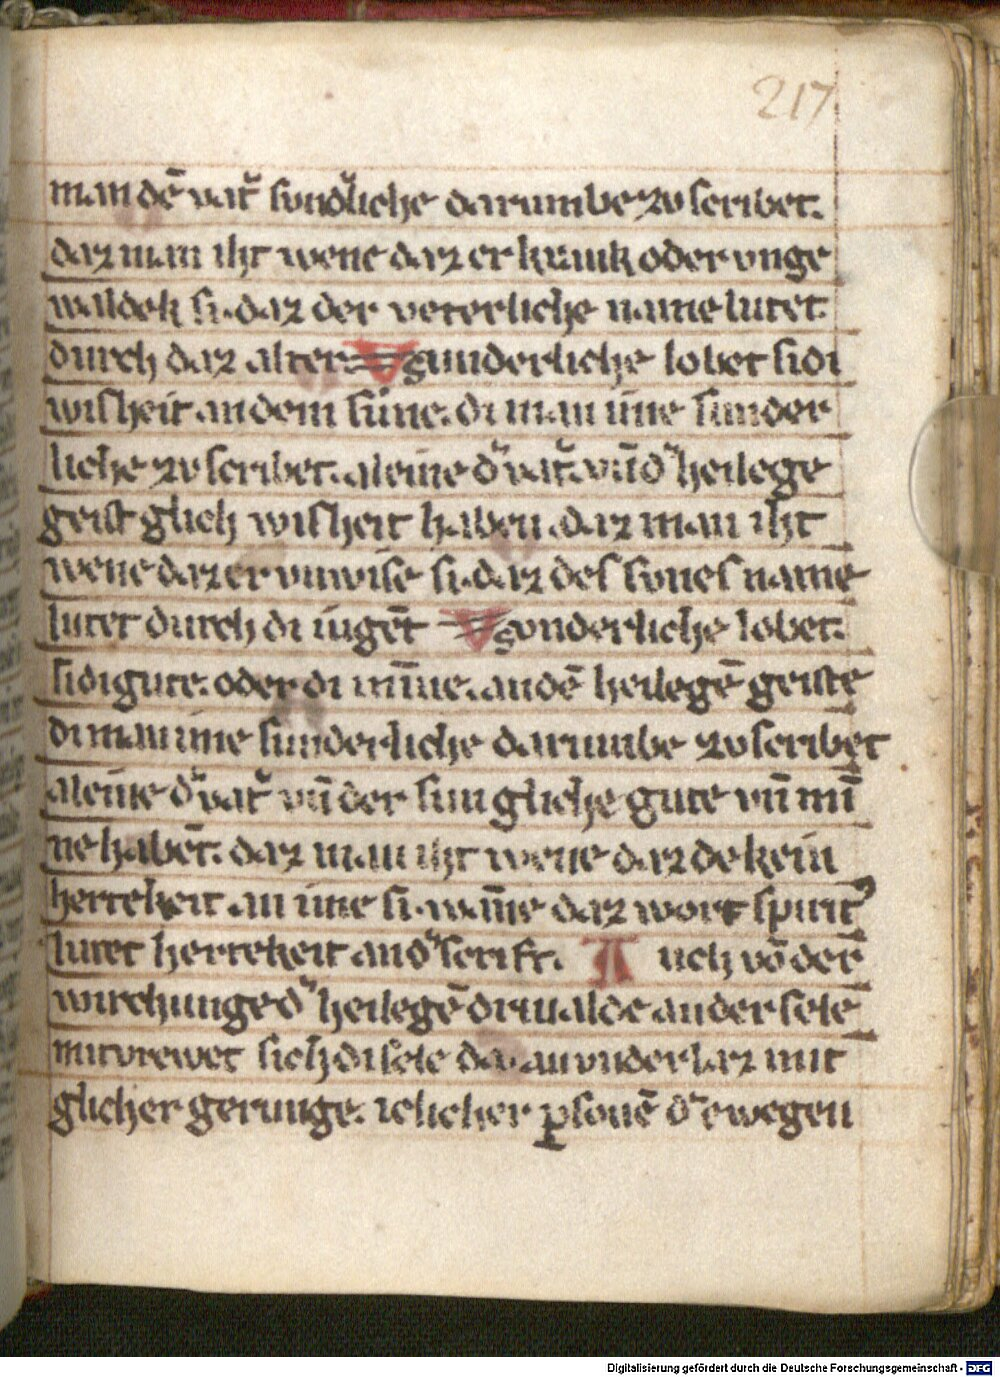 217
man dē vat̕ sund̕liche darumbe zv scribet.
daz man iht wene daz er krank oder vnge
waldek si. daz der veterliche name lutet.
durch daz alter. sunderliche lobet si di
wisheit an dem sune. di man ime sunder
liche zv scribet. aleine d̕ vat̕. vn̄ d̕ heilege
geist glich wisheit haben. daz man iht
wene daz er vnwise si. daz des svnes name
lutet durch di iugēt svnderliche lobet.
si di gute. oder di mīne. an dē heilegē geiste
di man ime sunderliche darumbe zv scribet
aleine d̕ vat̕ vn̄ der sun gliche gute vn̄ mī
ne habēt. daz man iht wene daz dekein
hertekeit an ime si. wāne daz wort spirit̕
lutet hertekeit an d̕ scrift. A uch vō der
wirchunge d̕ heilegē driualde an der sele
mitvrewet sich di sele da. an vnderlaz mit
glicher gerunge. iclicher p̱sonē d̕ ewegen
Digitalisierung gefördert durch die Deutsche Forschungsgemeinschaft - DFG